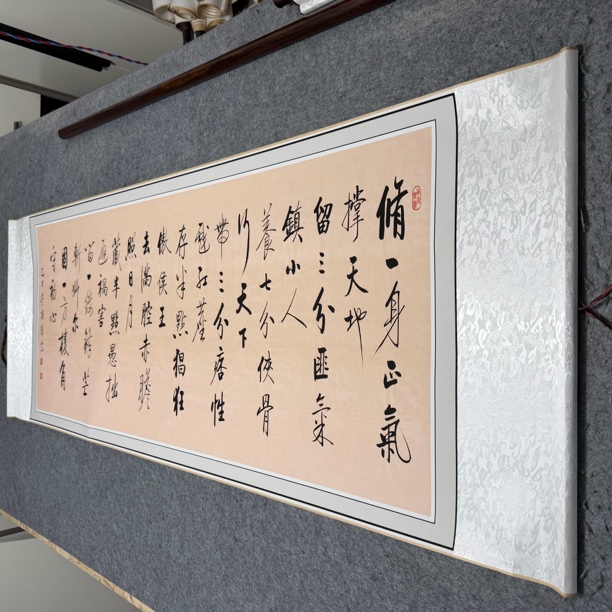 脩一身正氣
撑天地
留三分匪氣
鎮小人
養七分俠骨
行天下
帶三分痞性
戲紅塵
存半點猖狂
傲侯王
去滿腔赤膽
照日月
藏半點愚拙
避禍害
留一縷鋒芒
斬奸
一方棱角
守初心